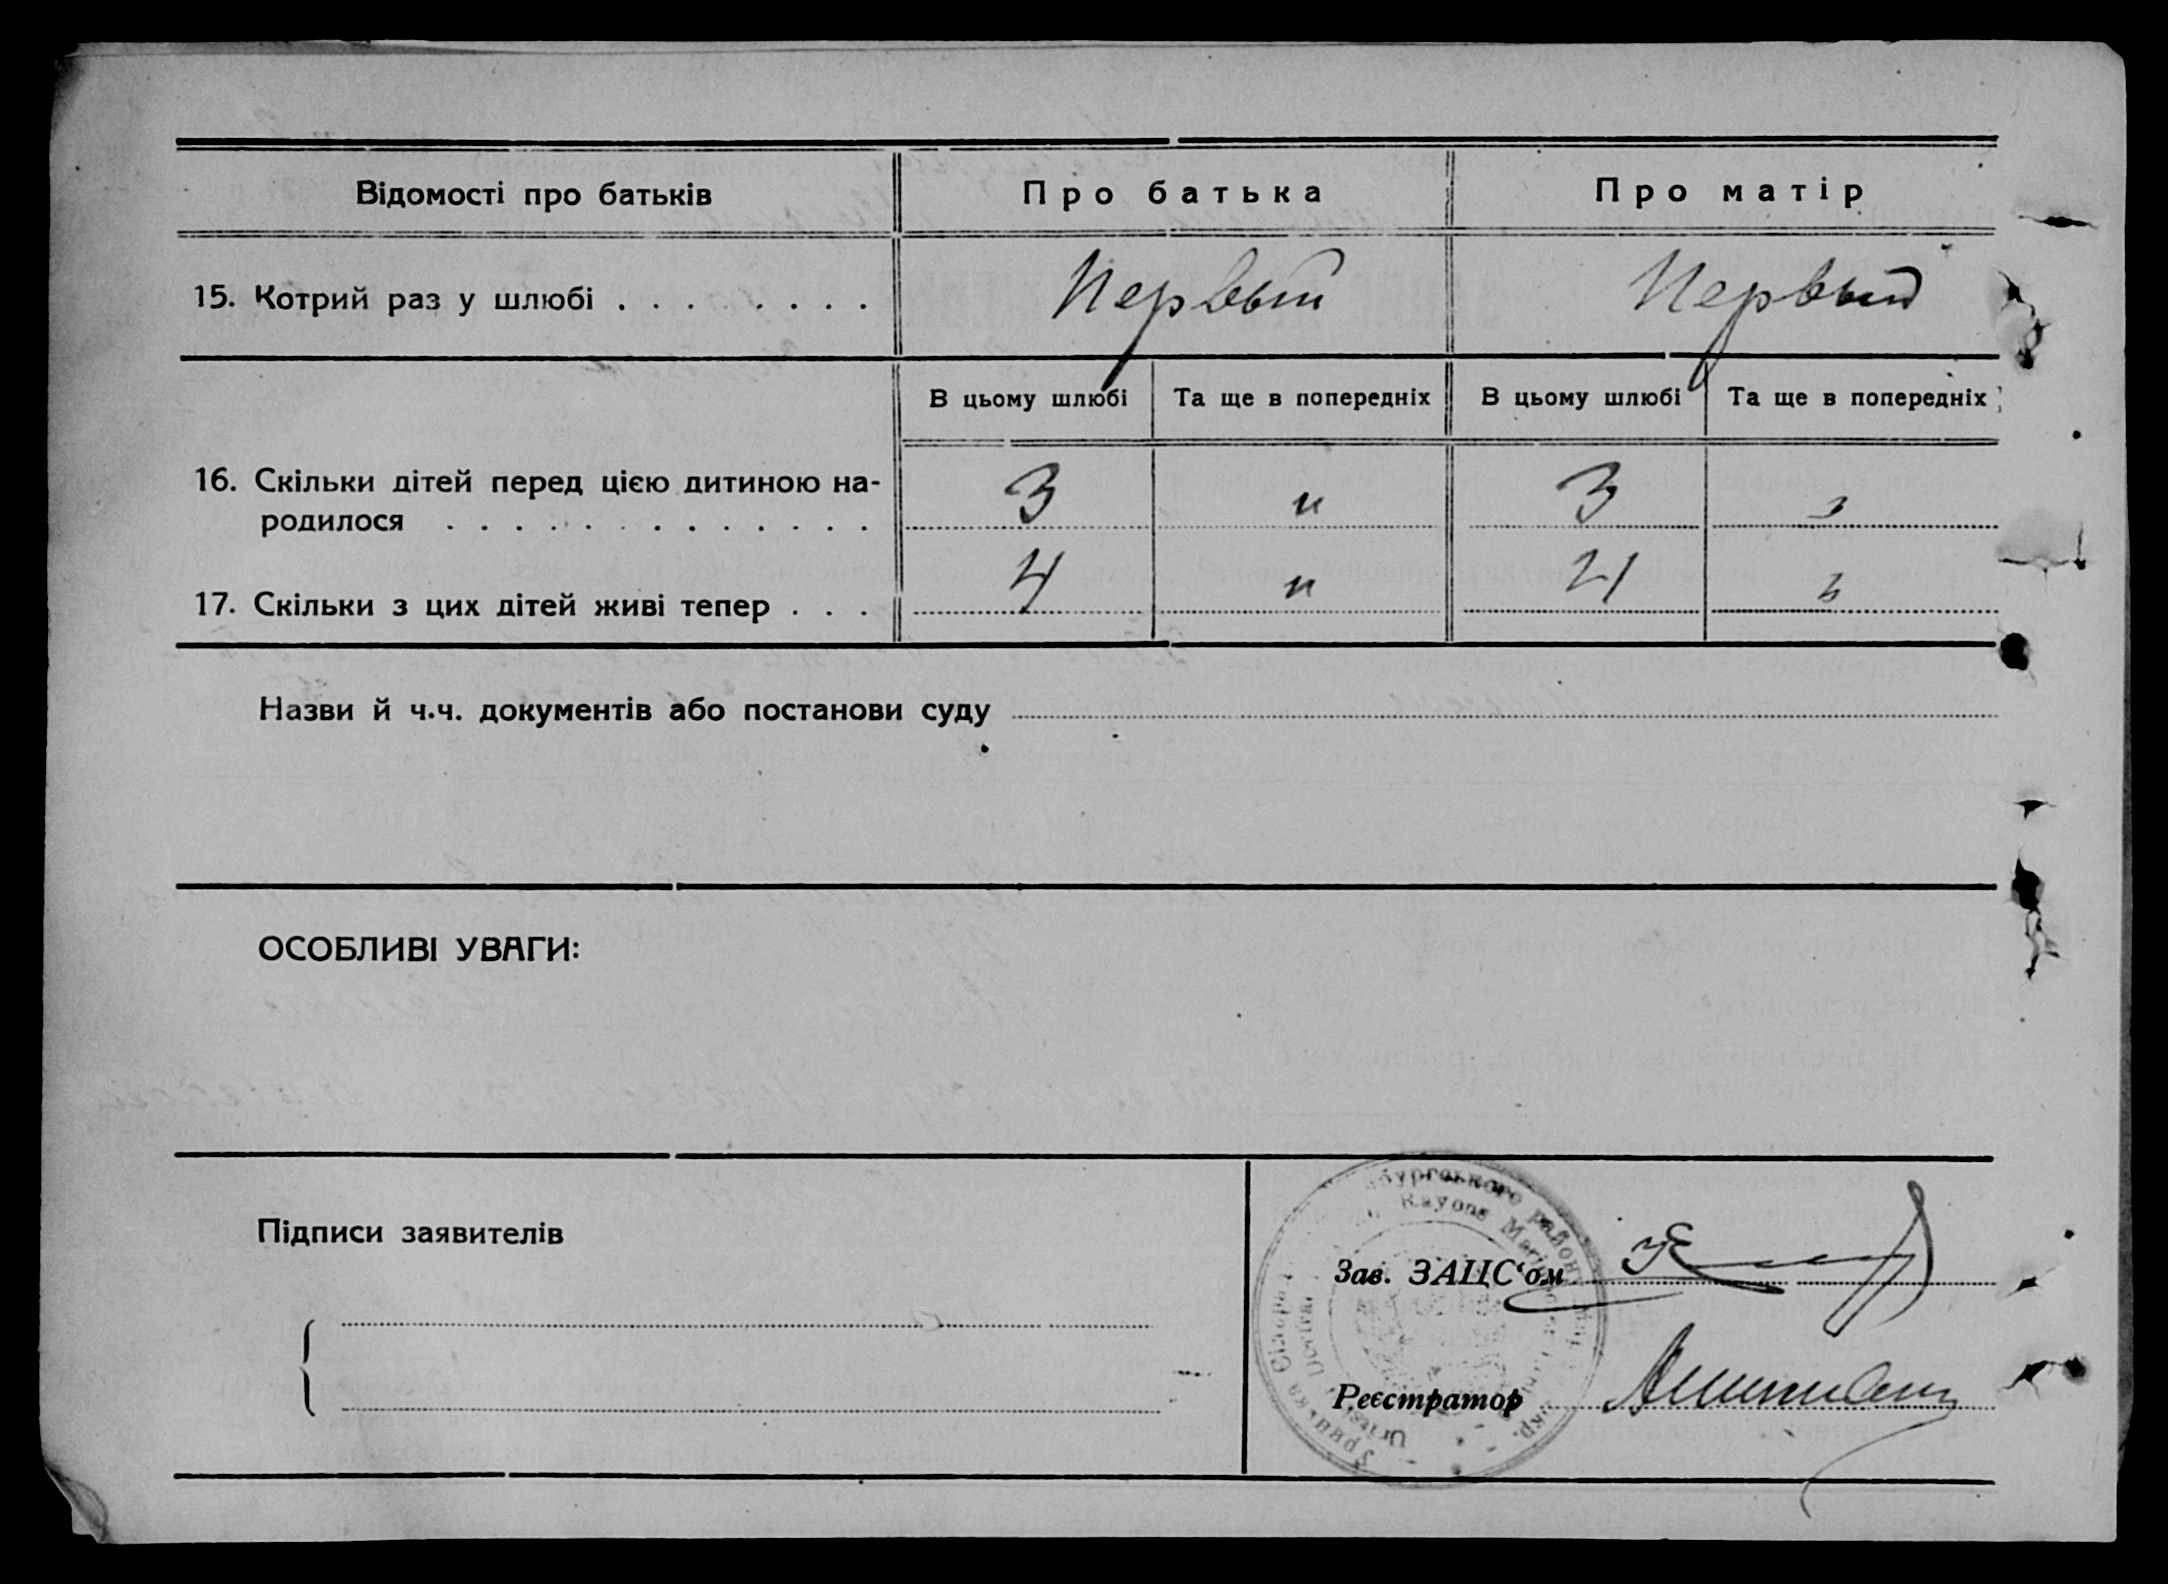 Відомості про батьків Про батька Про матір
15. Котрий раз у шлюбі . . . . . . . . Первый Первый
В цьому шлюбі Та ще в попередніх В цьому шлюбі Та ще в попередніх
16. Скільки дітей перед цією дитиною на-
родилося . . . . . . . . . . . . . 3 " 3 "
17. Скільки з цих дітей живі тепер . . . 4 " 4 "
Назви й ч.ч. документів або постанови суду
ОСОБЛИВІ УВАГИ:
Підписи заявителів
бургського району
Rayons
Зав. ЗАЦС‘ом
Реєстратор